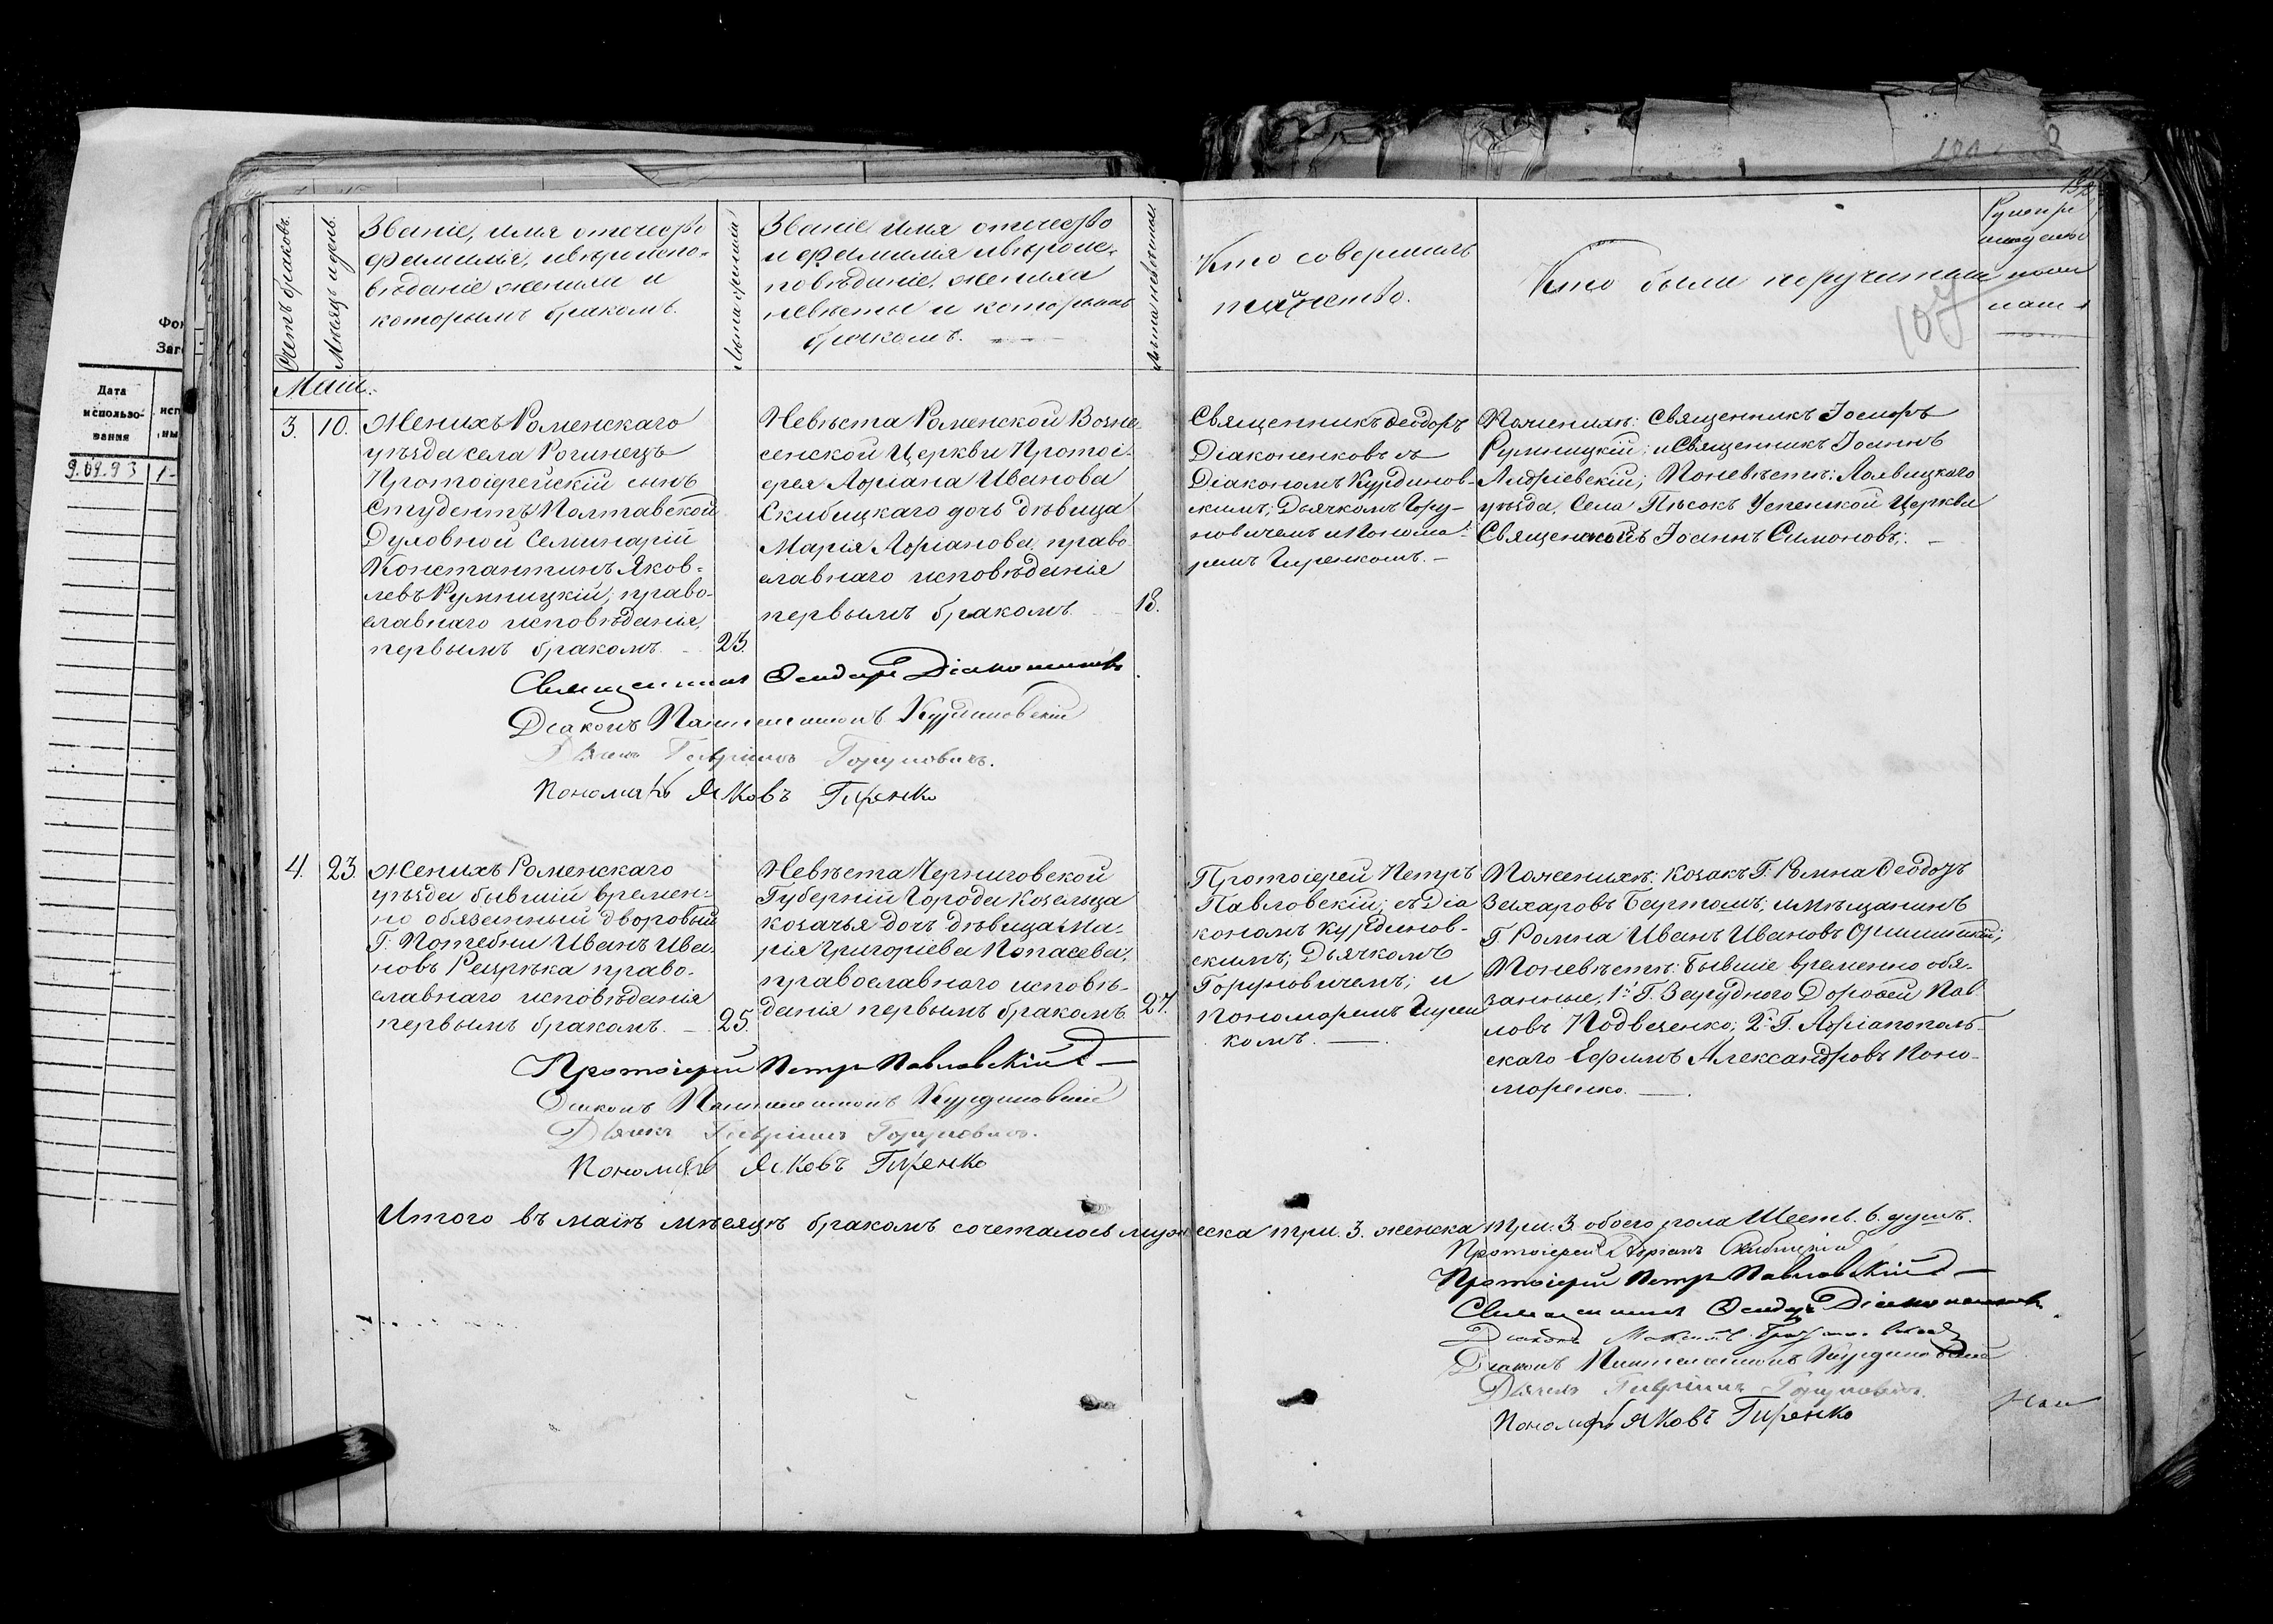 Фо
Заг
Дата
использо-
вания
исп
ны
9.09.93
1-
Счетъ браковъ.
Мѣсяцъ и день.
Званіе, имя отечество
фамилія, и вѣроиспо-
вѣданіе жениха и
которымъ бракомъ.
Лѣта жениха
Званіе имя отечество
и фамилія и вѣроис-
повѣданіе, жениха
невѣсты и которымъ
бракомъ.
Лѣта невѣсты
Кто совершалъ
таинство.
Кто были поручители
107
Маій.
3. 10. Женихъ Роменскаго
уѣзда села Рогинецъ
Протоіерейскій сынъ
Студентъ Полтавской
Духовной Семинаріи
Константинъ Яков-
левъ Румницкій; право-
славнаго исповѣданія,
первымъ бракомъ. 23.
Невѣста Роменской Возне-
сенской Церкви Протоі-
ерея Адріана Иванова
Скибицкаго дочь дѣвица
Марія Адріанова, право-
славнаго исповѣданія
первымъ бракомъ. 18.
Священникъ Феодоръ
Діаконенковъ съ
Діакономъ Курдинов-
скимъ; Дьячкомъ Гору-
новичемъ и Понома-
ремъ Гиренкомъ.
По женихѣ: Священникъ Іосифъ
Румницкій; и Священникъ Іоаннъ
Андріевскій; По невѣстѣ: Лохвицкаго
уѣзда, Села Пѣсокъ Успенской Церкви
Священникъ Іоаннъ Симоновъ;
Священникъ Феодоръ Діаконенковъ
Діаконъ Пантелеимонъ Курдиновскій
Дьячекъ Гавріилъ Горуновичъ.
Пономарь Яковъ Гиренко
4. 23. Женихъ Роменскаго
уѣзда бывшій времен-
но обязанный дворовый
Г. Потебни Иванъ Ива-
новъ Рещрѣка право-
славнаго исповѣданія
первымъ бракомъ. 25.
Невѣста Черниговской
Губерніи Города Козельца
козачья дочь дѣвица Ма-
рія Григоріева Попасева,
православнаго исповѣ-
данія первымъ бракомъ. 27.
Протоіерей Петръ
Павловскій; съ Діа
кономъ Курдинов-
скимъ; Дьячкомъ
Горуновичемъ; и
Пономоремъ Гирен
комъ.
По женихѣ: козакъ Г. Ромна Феодоръ
Захаровъ, и мѣщанинъ
Г. Ромна Иванъ Ивановъ
По невѣстѣ: бывшіе временно обя-
занные, 1й Г. Зарудного Дорофей Пав-
ловъ Подвеченко; 2й Г. Адріанополь-
скаго Ефимъ Александровъ Поно-
моренко.
Протоіерей Петръ Павловскій
Діаконъ Пантелеимонъ Курдиновскій
Дьячекъ Гавріилъ Горуновичъ.
Пономарь Яковъ Гиренко
Итого въ маіѣ мѣсяцѣ бракомъ сочеталось мужеска три. 3. женска три. 3. обоего пола Шесть. 6. душъ.
Протоіерей Адріанъ Скибицкій
Протоіерей Петръ Павловскій
Священникъ Феодоръ Діаконенковъ
Діаконъ
Діаконъ Пантелеимонъ Курдиновскій
Дьячекъ Гавріилъ Горуновичъ.
Пономарь Яковъ Гиренко